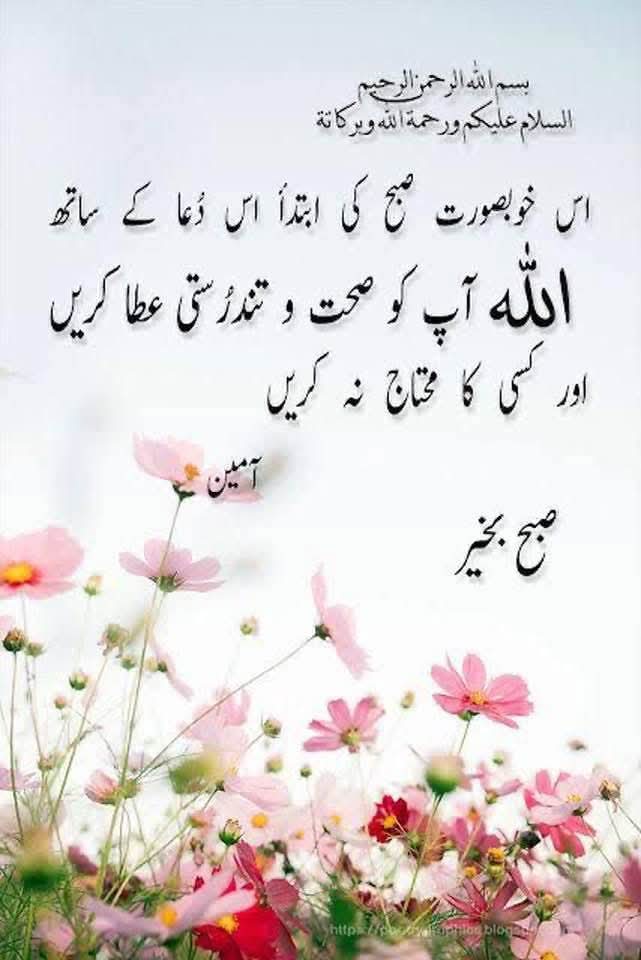 بسم اللہ الرحمن الرحیم
السلام علیکم ورحمۃ اللہ وبرکاتۃ
اس خوبصورت صبح کی ابتدأ اس دُعا کے ساتھ
اللہ آپ کو صحت و تندرُستی عطا کریں
اور کسی کا محتاج نہ کریں
آمین
صبح بخیر